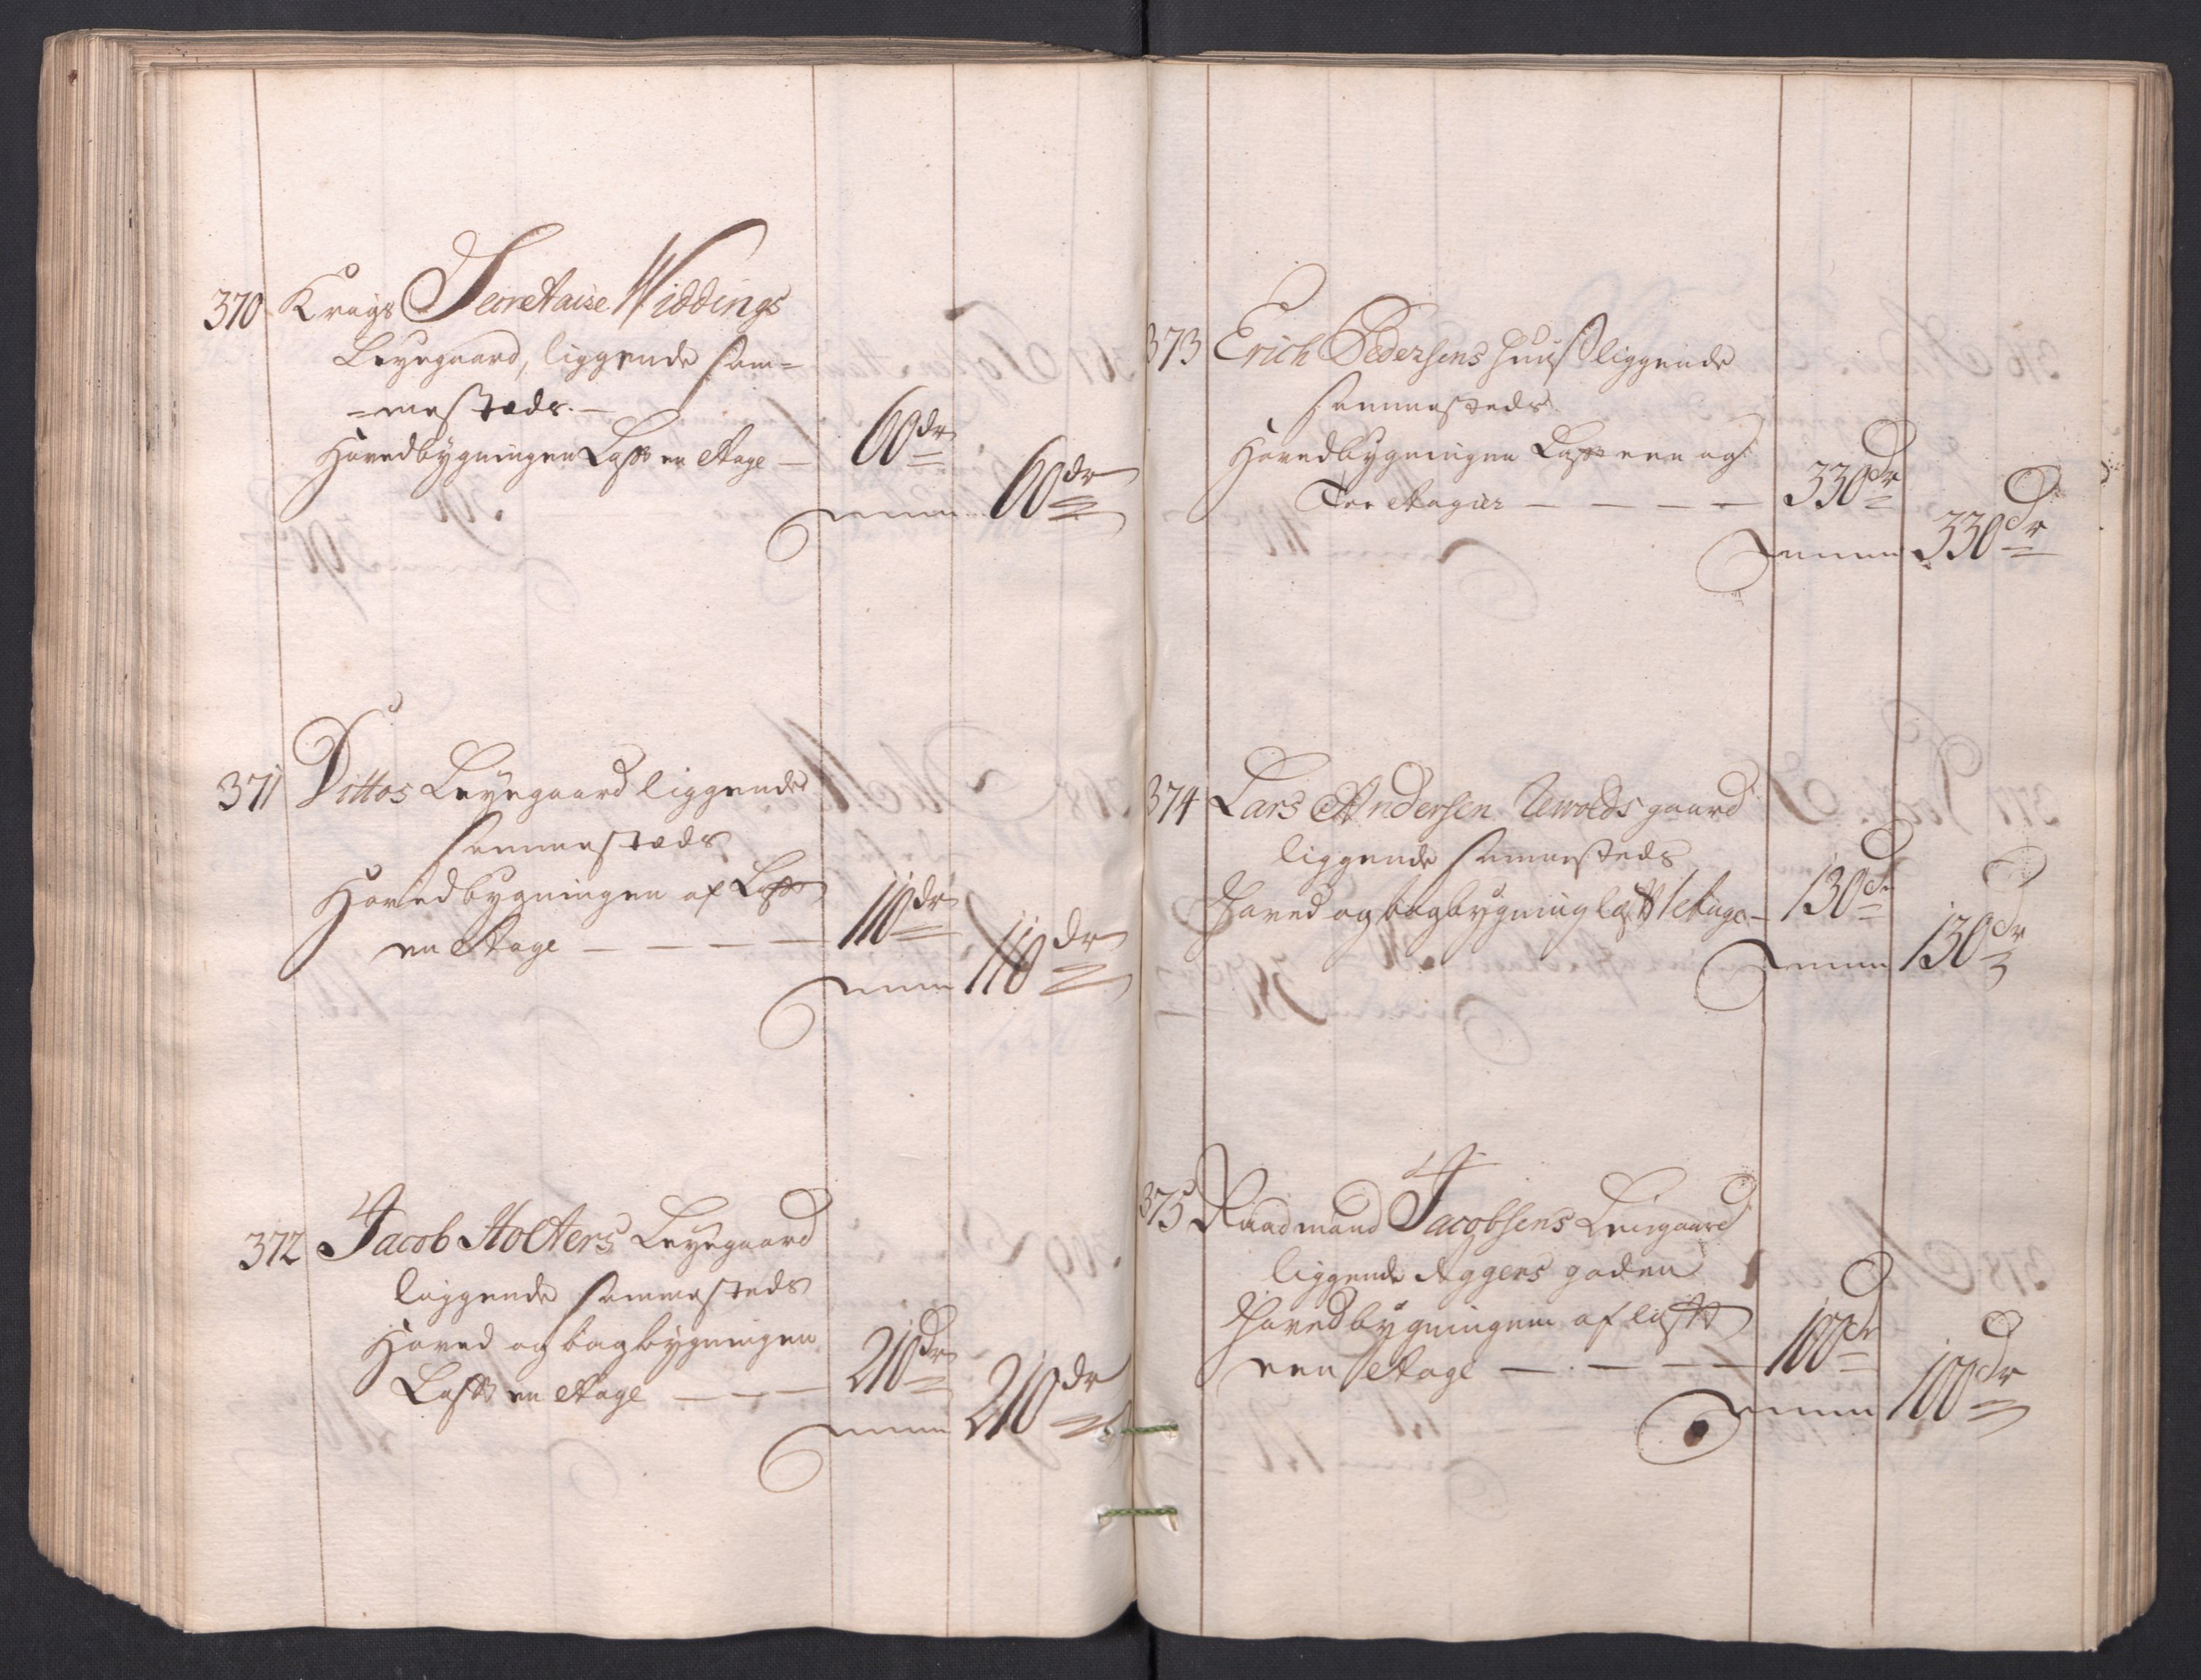 370 Krigs Secretaire Widdings
Leyegaard, liggende sam=
=mestæds. —
Hovedbygningen Laft en Etage — 60 dr
Summa 60 dr
371 Dittos Leyegaard liggende
sammestæds
Hovedbygningen af Laft
en Etage — — — — 110 dr
Summa 110 dr
372 Jacob Holters Leyegaard
liggende sammesteds
Hoved og bagbygningen
Laft en Etage — — — 210 dr
Summa 210 dr
373 Erich Pedersens Huus liggende
sammesteds
Hovedbygningen Laft een og
Toe Etagier — — — — 330 dr
Summa 330 dr
374 Lars Andersen gaard
liggende sammesteds
Hoved og bagbygning laft 1 etage — 130 dr
Summa 130 dr
375 Raadmand Jacobsens Leiegaard
liggende Aggers gaden
Hovedbygningen af laft
een Etage — — — — 100 dr
Summa 100 dr